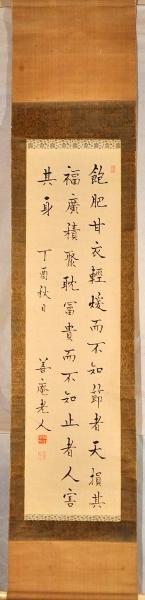 飽肥甘衣輕煖而不知節者天損其
福廣積聚耽冨貴而不知止者人害
其身　丁酉秋日
善菴老人